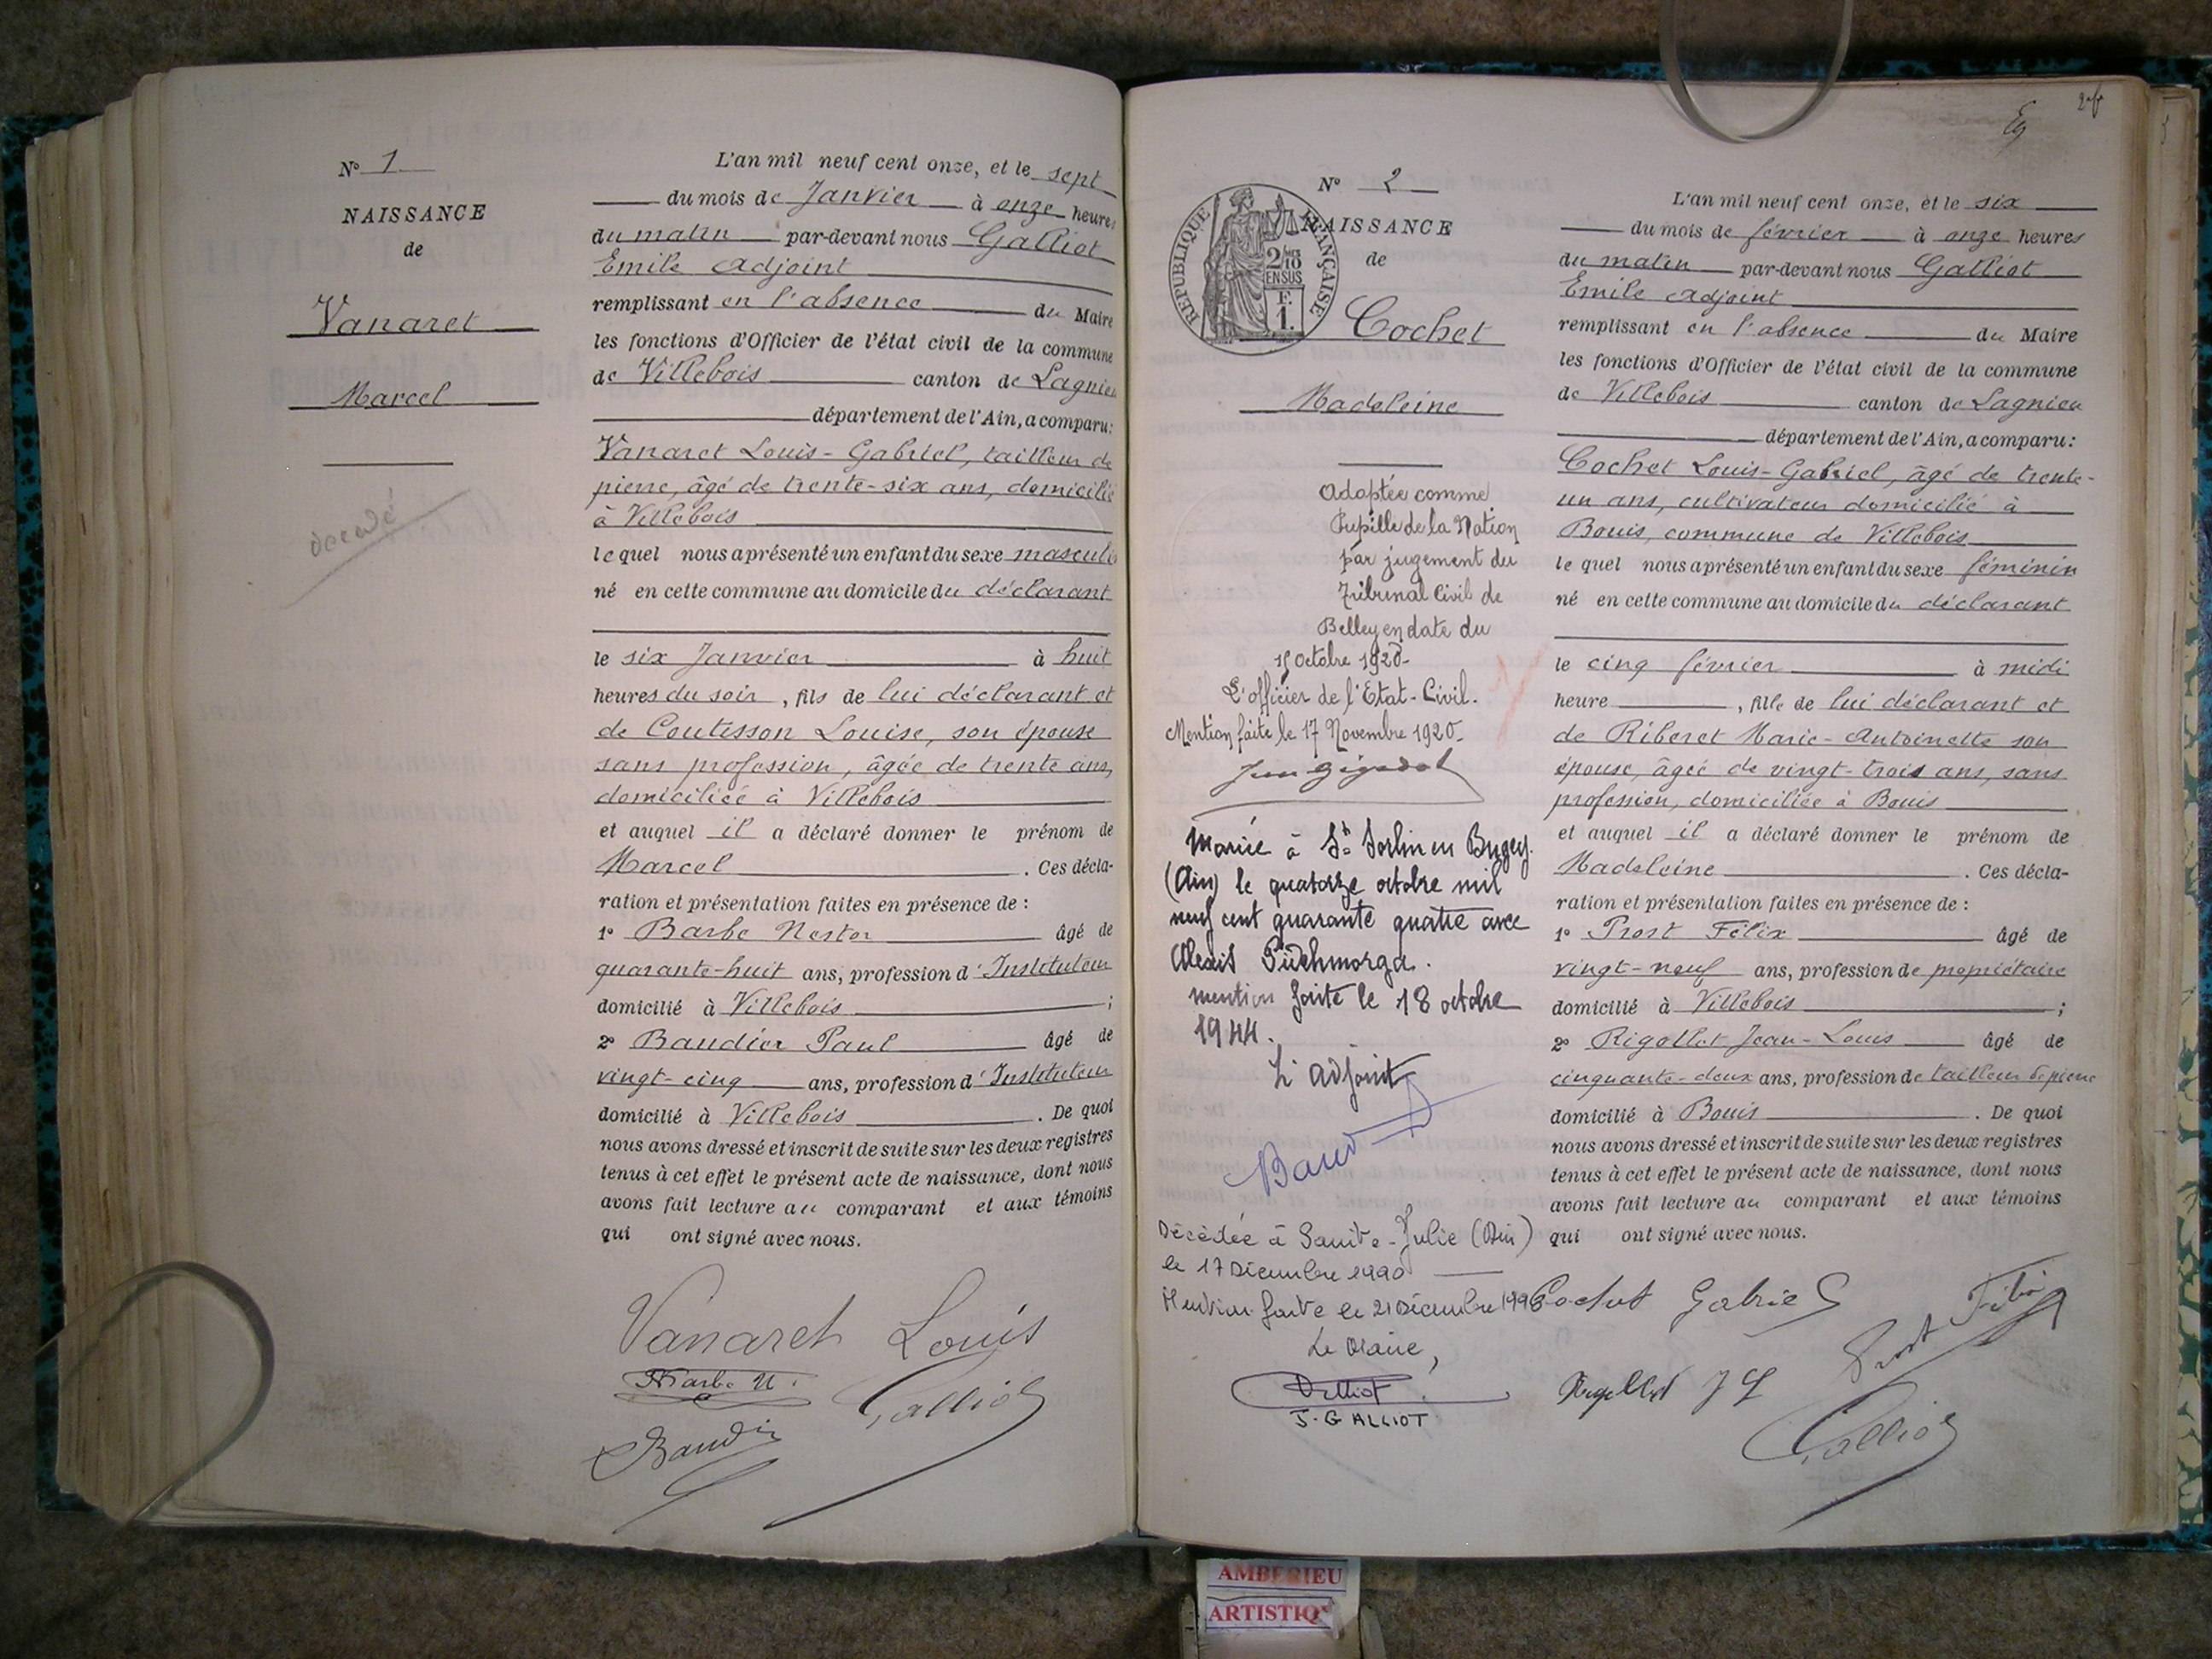 N° 1
NAISSANCE
de
Vanaret
Marcel
décédé
L'an mil neuf cent onze, et le sept
du mois de Janvier à onze heures
du matin par-devant nous Galliot
Emile adjoint
remplissant en l'absence du Maire
les fonctions d'Officier de l'état civil de la commune
de Villebois canton de Lagnieu
département de l'Ain, a comparu:
Vanaret Louis-Gabriel, tailleur de
pierre, âgé de trente-six ans, domicilié
à Villebois
lequel nous a présenté un enfant du sexe masculin
né en cette commune au domicile du déclarant
le six Janvier à huit
heures du soir, fils de lui déclarant et
de Coutisson Louise, son épouse
sans profession, âgée de trente ans,
domiciliée à Villebois
et auquel il a déclaré donner le prénom de
Marcel. Ces décla-
ration et présentation faites en présence de :
1° Barbe Nestor âgé de
quarante-huit ans, profession d'Instituteur
domicilié à Villebois ;
2° Baudier Paul âgé de
vingt-cinq ans, profession d'Instituteur
domicilié à Villebois. De quoi
nous avons dressé et inscrit de suite sur les deux registres
tenus à cet effet le présent acte de naissance, dont nous
avons fait lecture au comparant et aux témoins
qui ont signé avec nous.
Vanaret Louis
Barbe N.
Galliot
Baudier
2
N° 2
REPUBLIQUE FRANÇAISE
2/10 EN SUS
F. 1.
NAISSANCE
de
Cochet
Madeleine
Adoptée comme
Pupille de la Nation
par jugement du
Tribunal Civil de
Belley en date du
15 Octobre 1920-
L'officier de l'Etat-Civil.
Mention faite le 17 Novembre 1920-
Mariée à St Sorlin en Bugey
(Ain) le quatorze octobre mil
neuf cent quarante quatre avec
Alexis
mention faite le 18 octobre
1944.
L'adjoint
Décédée à Sainte-Julie (Ain)
le 17 Décembre 1990
Mention faite le 21 Décembre 1990
Le Maire,
J. GALLIOT
L'an mil neuf cent onze, et le six
du mois de février à onze heures
du matin par-devant nous Galliot
Emile adjoint
remplissant en l'absence du Maire
les fonctions d'Officier de l'état civil de la commune
de Villebois canton de Lagnieu
département de l'Ain, a comparu:
Cochet Louis-Gabriel, âgé de trente-
un ans, cultivateur domicilié à
Bouis, commune de Villebois
lequel nous a présenté un enfant du sexe féminin
né en cette commune au domicile du déclarant
le cinq février à midi
heure , fille de lui déclarant et
de Riberet Marie-Antoinette son
épouse, âgée de vingt-trois ans, sans
profession, domiciliée à Bouis
et auquel il a déclaré donner le prénom de
Madeleine. Ces décla-
ration et présentation faites en présence de :
1° Prost Félix âgé de
vingt-neuf ans, profession de propriétaire
domicilié à Villebois ;
2° Rigollet Jean-Louis âgé de
cinquante-deux ans, profession de tailleur de pierre
domicilié à Bouis. De quoi
nous avons dressé et inscrit de suite sur les deux registres
tenus à cet effet le présent acte de naissance, dont nous
avons fait lecture au comparant et aux témoins
qui ont signé avec nous.
Cochet Gabriel
Prost Félix
Rigollet J L
Galliot
AMBERIEU
ARTISTIQ